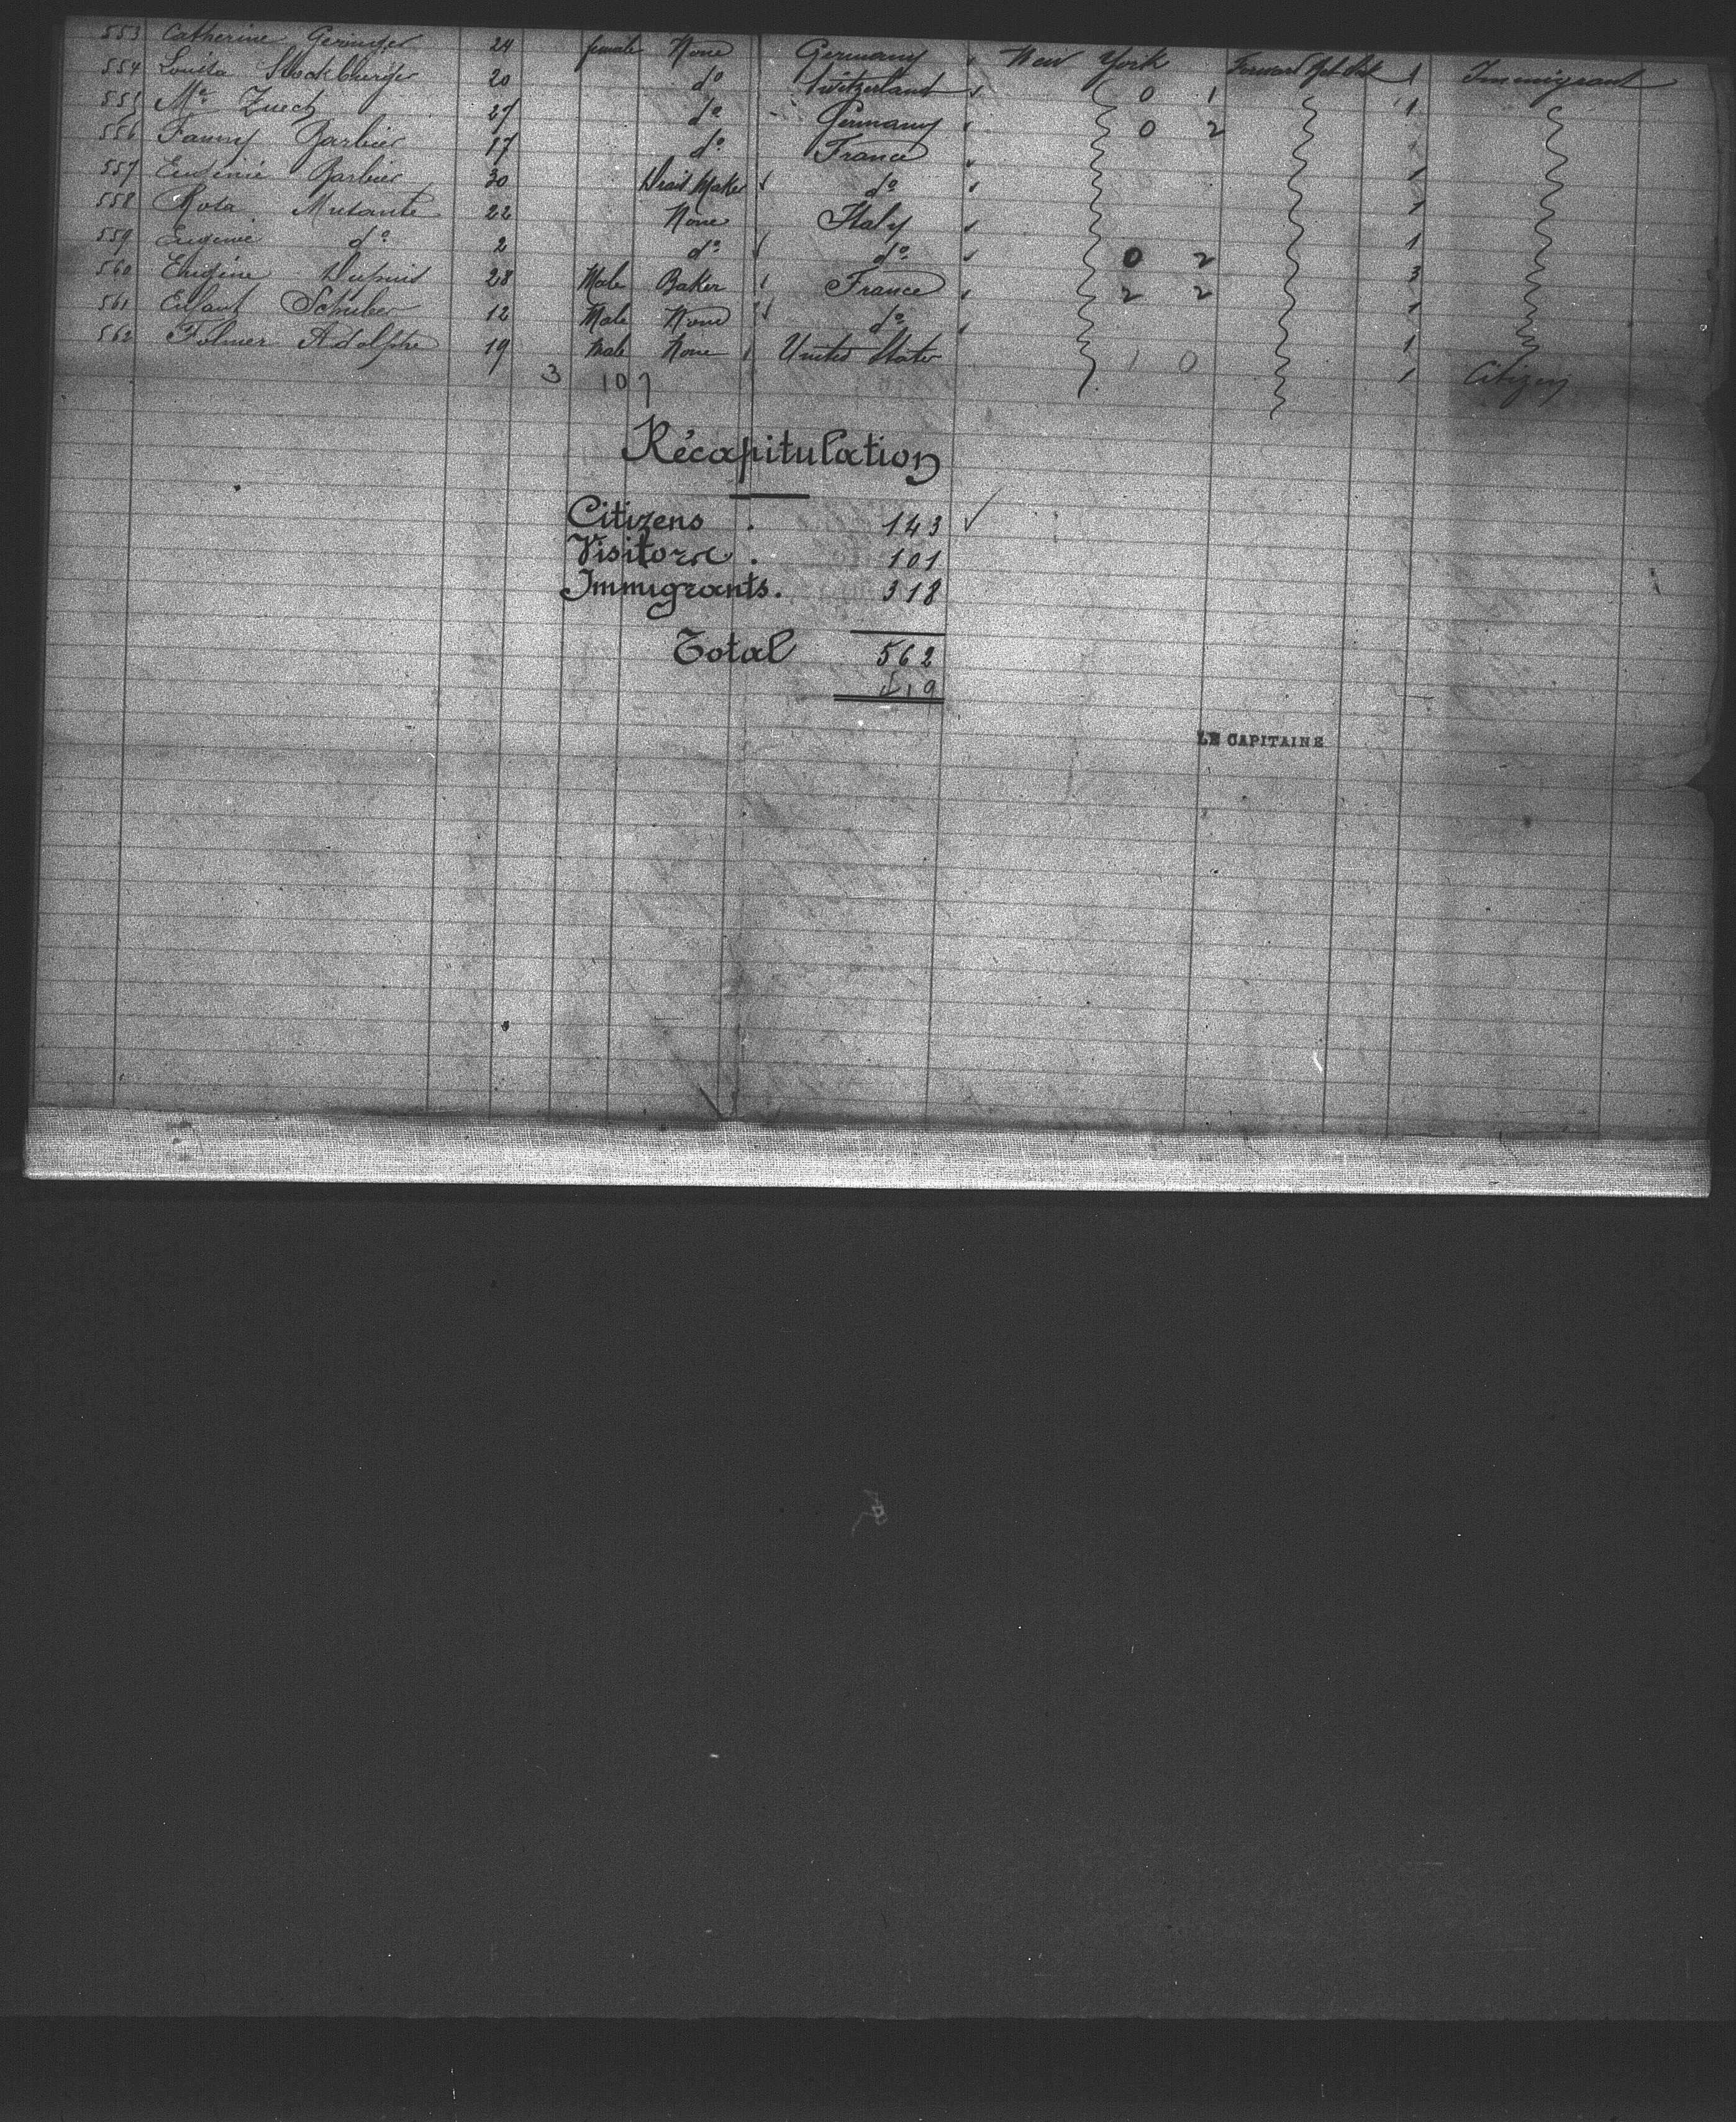 553 Catherine Geringer 24 female None Germany New York Forward 1 Immigrant
554 Louisa Stockburger 20 do Switzerland 0 1 1
555 Me Zuech 27 do Germany 0 2
556 Fanny Barbier 17 do France 1
557 Eugénie Barbier 30 Maker do 1
558 Rosa Musante 22 None Italy 1
559 Eugenie do 2 do do 0 2 3
560 Eugène Dupuis 28 Male Baker France 2 2 1
561 Schuber 12 Male None do 1
562 Folmer Adolphe 19 Male None United States 1 0 1 Citizen
3 107
Récapitulation
Citizens . 143
Visitors . 101
Immigrants . 318
Total 562
19
LE CAPITAINE